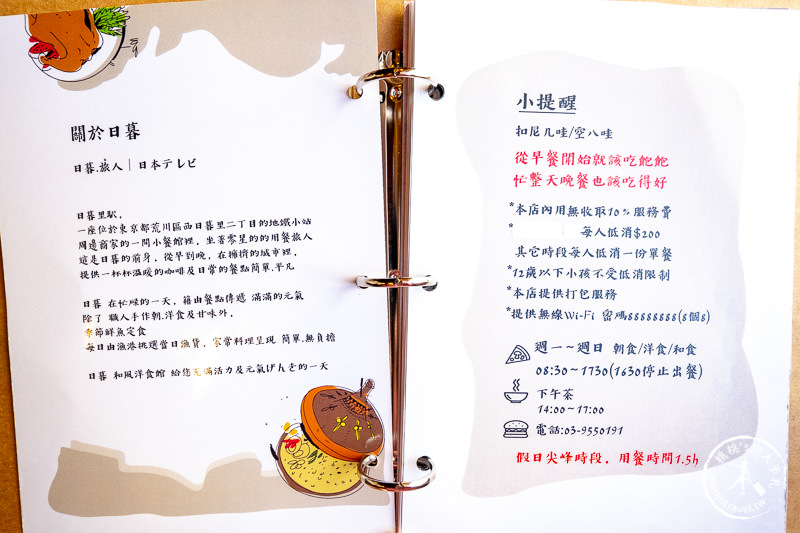 關於日暮
日暮.旅人｜日本テレビ
日暮里駅，
一座位於東京都荒川區西日暮里二丁目的地鐵小站
周邊商家的一間小餐館裡，坐著零星的的用餐旅人
這是日暮的前身，從早到晚，在擁擠的城市裡，
提供一杯杯溫暖的咖啡及日常的餐點簡單.平凡
日暮 在忙碌的一天，藉由餐點傳遞 滿滿的元氣
除了 職人手作朝.洋食及甘味外，
季節鮮魚定食
每日由漁港挑選當日漁貨，家常料理呈現 簡單.無負擔
日暮 和風洋食館 給您充滿活力及元氣げんき的一天
小提醒
扣尼几哇/空八哇
從早餐開始就該吃飽飽
忙整天晚餐也該吃得好
*本店內用無收取10%服務費
* 每人低消$200
其它時段每人低消一份單餐
*12歲以下小孩不受低消限制
*本店提供打包服務
*提供無線Wi-Fi 密碼88888888(8個8)
週一～週日 朝食/洋食/和食
08:30～1730(1630停止出餐)
下午茶
14:00～17:00
電話:03-9550191
假日尖峰時段，用餐時間1.5h